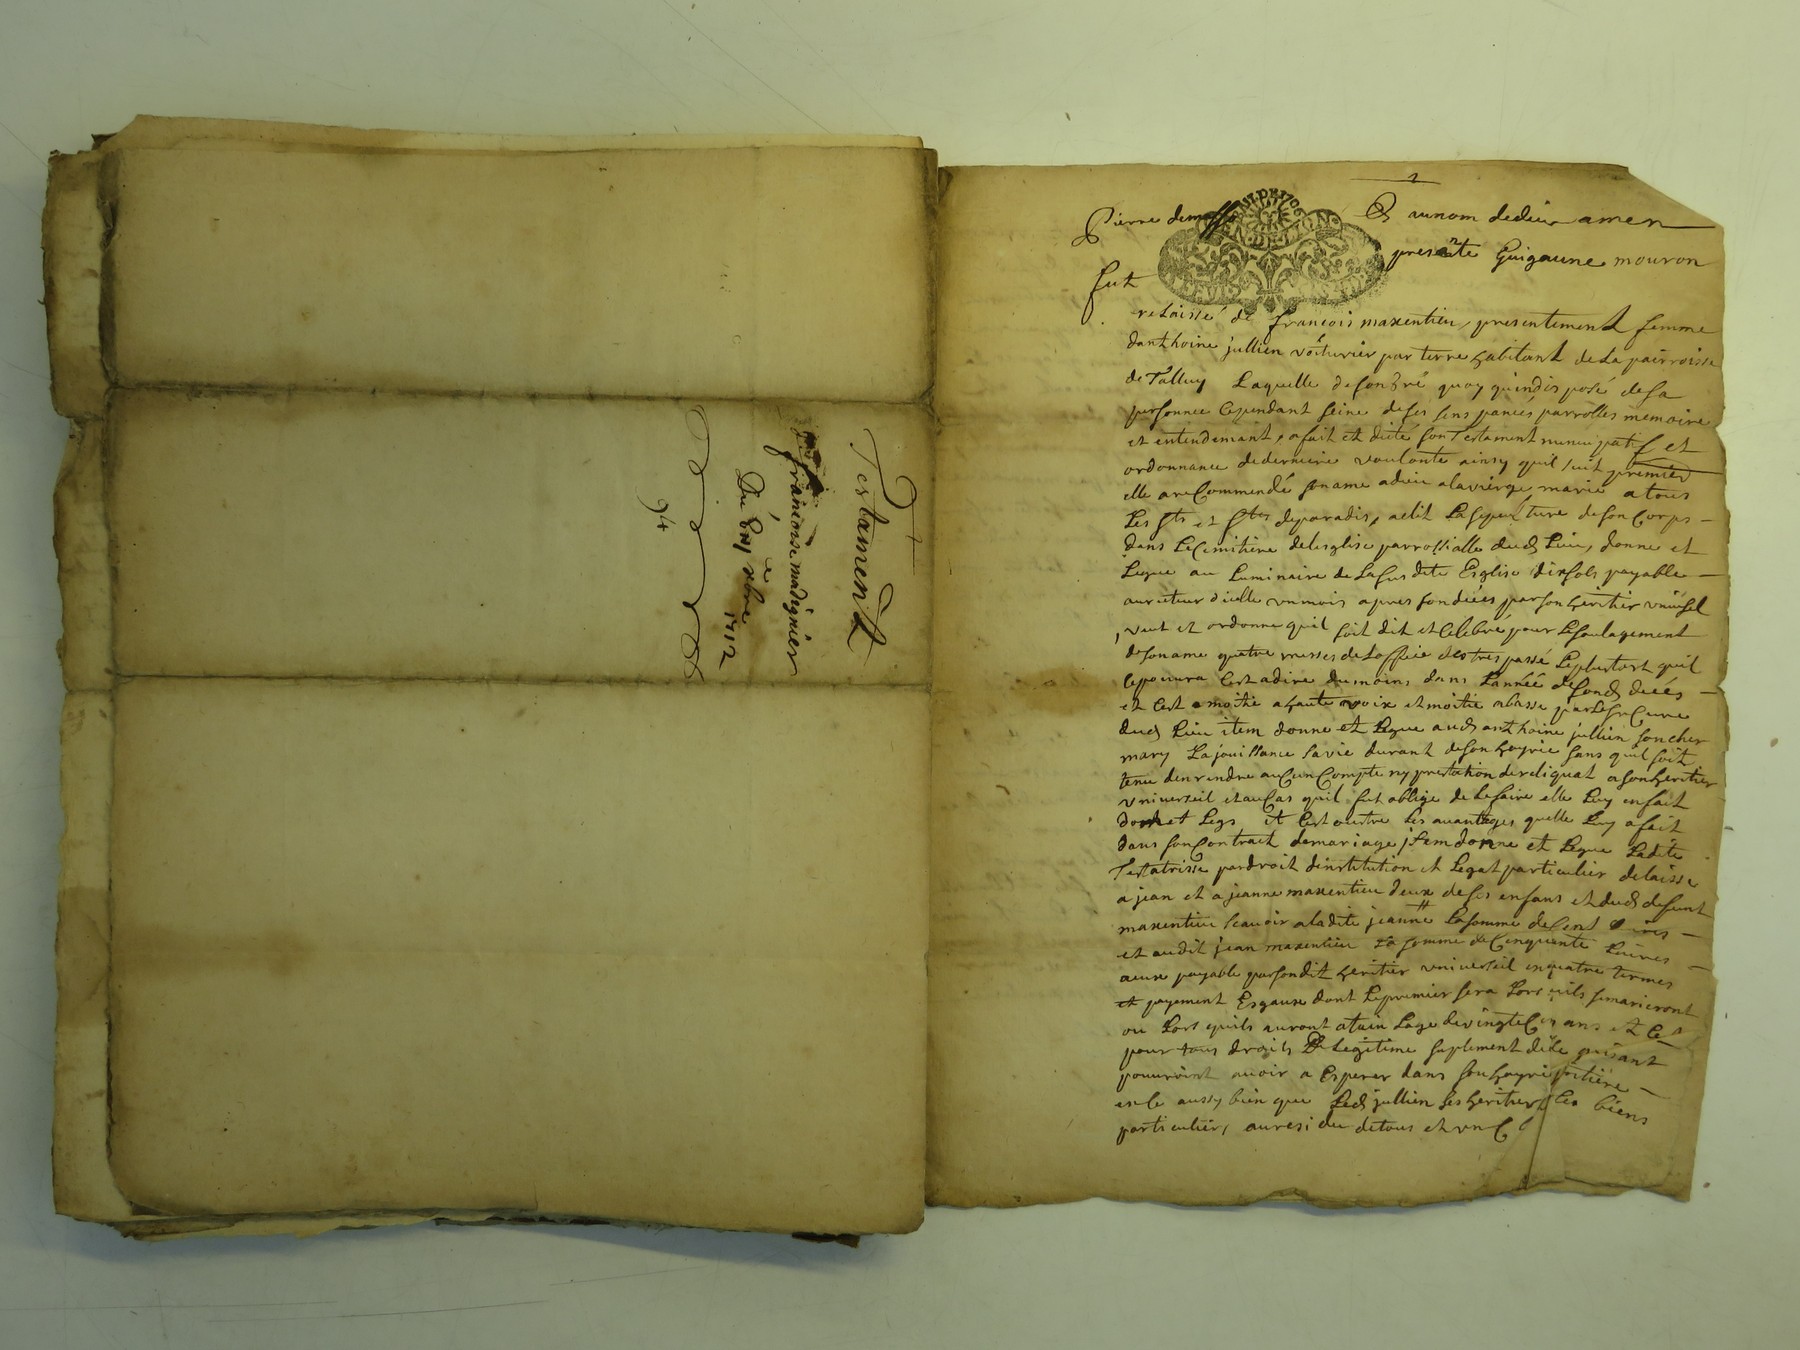 Testament
françoise madignier
Du 8bre 1712
94
Pierre
Au nom de dieu amen
fut presente Guigaune mouron
relaissé de françois maxentieu, presentement femme
danthoine jullien voiturier par terre habitant de la pairroisse
de Talluy Laquelle de son gré quoy quindisposé de sa
personnee cependant seine de ses sens pancés parrolles memoire
et entendemant, a fait et dicté son Testament nuncupatif et
ordonnance de derniere voulonte ainsy quil suit premier
elle a recommendé son ame a dieu a la vierge marie a tous
Les sts et stes de paradis, a elit La sepulture de son Corps
dans Le Cemitiere de lesglise parrossialle dud Lieu, donne et
Legue au Luminaire de La susdite Esglise dix sols payable
au recteur dicelle un mois apres son décés par son heritier
, veut et ordonne quil soit dit et Celebré pour Le soulagement
de son ame quatre messes de Loffice des trespassé Le plustost quil
ce pourra Cest a dire du moins dans Lannéé de sond décés
et Cest a moitie a haute voix et moitie a basse par Le sr Cure
dud Lieu item donne et Legue aud anthoine jullien son cher
mary La jouissance sa vie durant de son hoyrie sans quil soit
tenu den rendre aucun Compte ny prestation de reliquat a son heritier
universeil et au Cas quil fut obligé de Le faire elle Luy en fait
don et Legs et Cest outre Les avantages quelle Luy a fait
dans son Contract de mariage, jtem donne et Legue Ladite
Testatrisse par droit dinstitution et Legat particulier delaisse
a jean et a jeanne maxentieu deux de ses enfans et dud defunt
maxentieu scavoir a ladite jeanne La somme de Cent Livres
et audit jean maxentieu La somme de Cinquente Livres
a eux payable par sondit heritier universeil en quatre termes
et payement Esgaux dont Le premier sera Lors quils se marieront
ou Lors quils auront atain Lage de vingt Cinq ans et Ce
pour tous droits de Legitime suplement dicelle quisant
pouuroint avoir a Esperer dans son hoyrie
en Ce aussy bien que Led jullien ses heritiers
particulier, au resi du de tous et un C